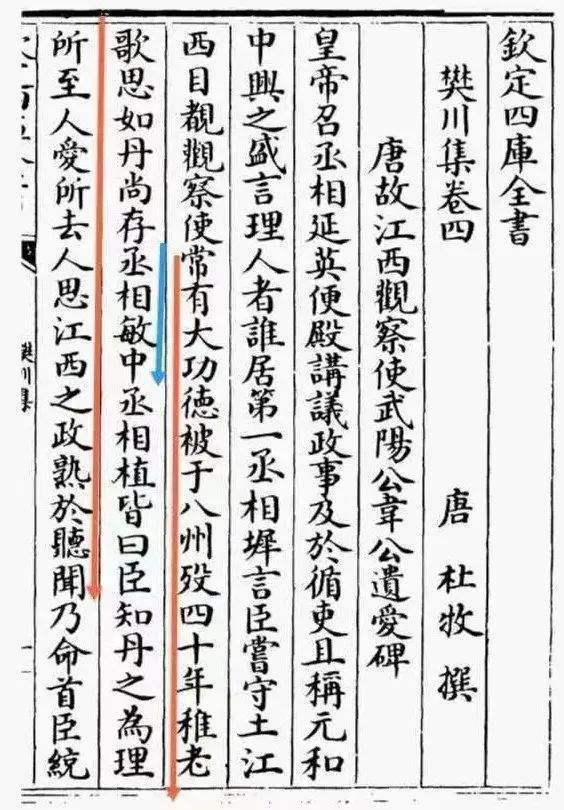 欽定四庫全書
樊川集卷四
唐 杜牧 撰
唐故江西觀察使武陽公韋公遺愛碑
皇帝召丞相延英便殿講議政事及於循吏且稱元和
中興之盛言理人者誰居第一丞相墀言臣嘗守土江
西目覩觀察使常有大功德被于八州歿四十年稚老
歌思如丹尚存丞相敏中丞相植皆曰臣知丹之為理
所至人愛所去人思江西之政熟於聽聞乃命首臣統